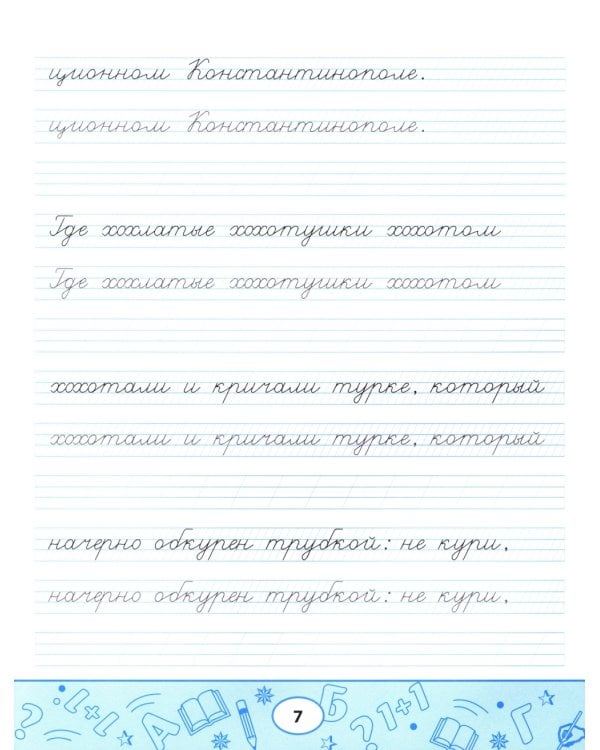 ционном Константинополе.
ционном Константинополе.
Где хохлатые хохотушки хохотом
Где хохлатые хохотушки хохотом
хохотали и кричали турке, который
хохотали и кричали турке, который
начерно обкурен трубкой: не кури,
начерно обкурен трубкой: не кури,
? 1+1 А 7 Б ? 1+1 Г